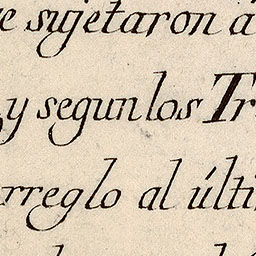 e sujetaron á
y segun los Tr
rreglo al últi